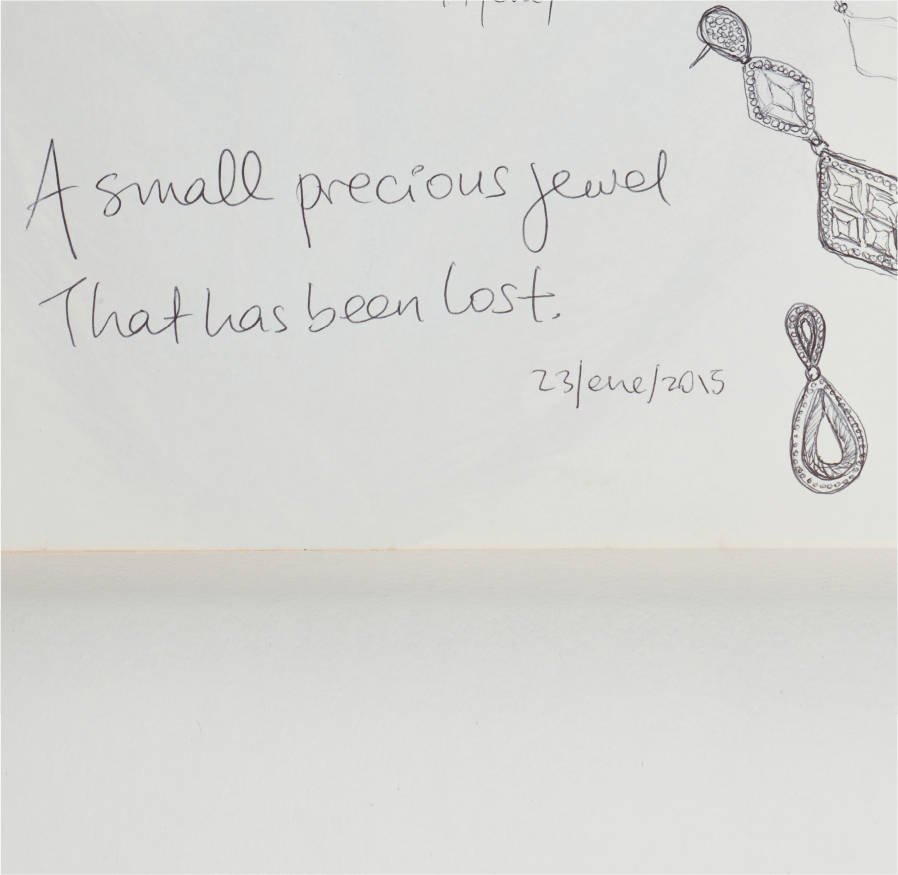 A small precious jewel
That has been lost.
23/ene/2015